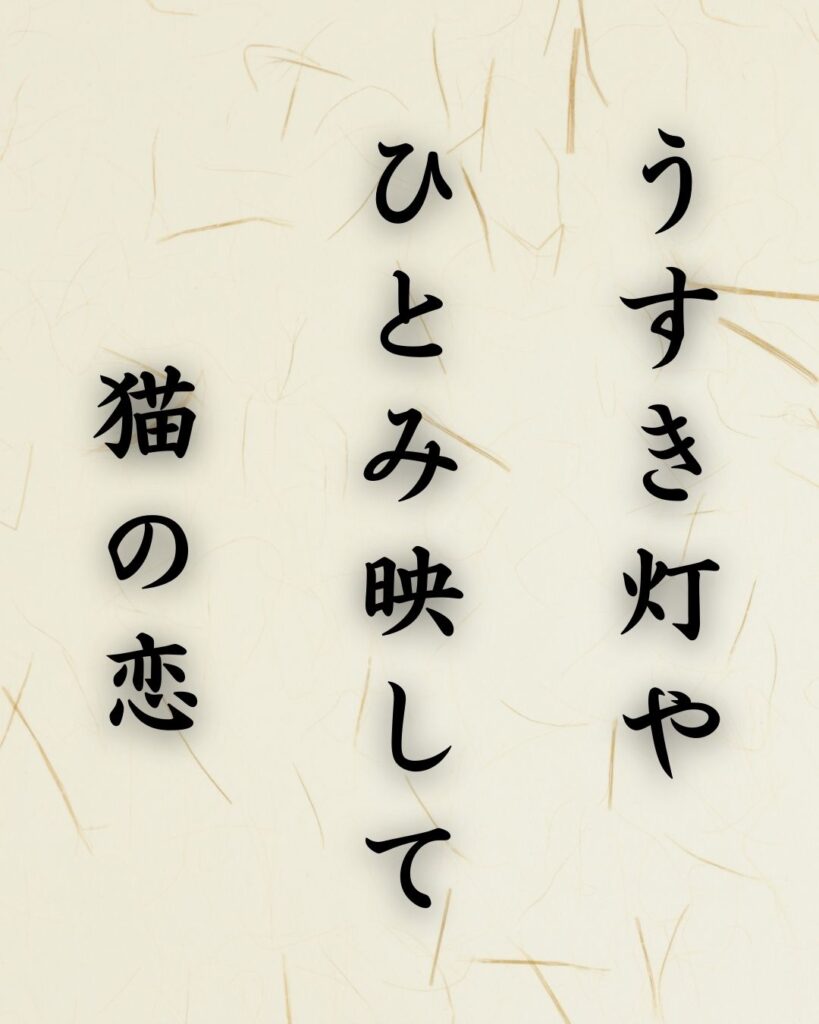 うすき灯や
ひとみ映して
猫の恋